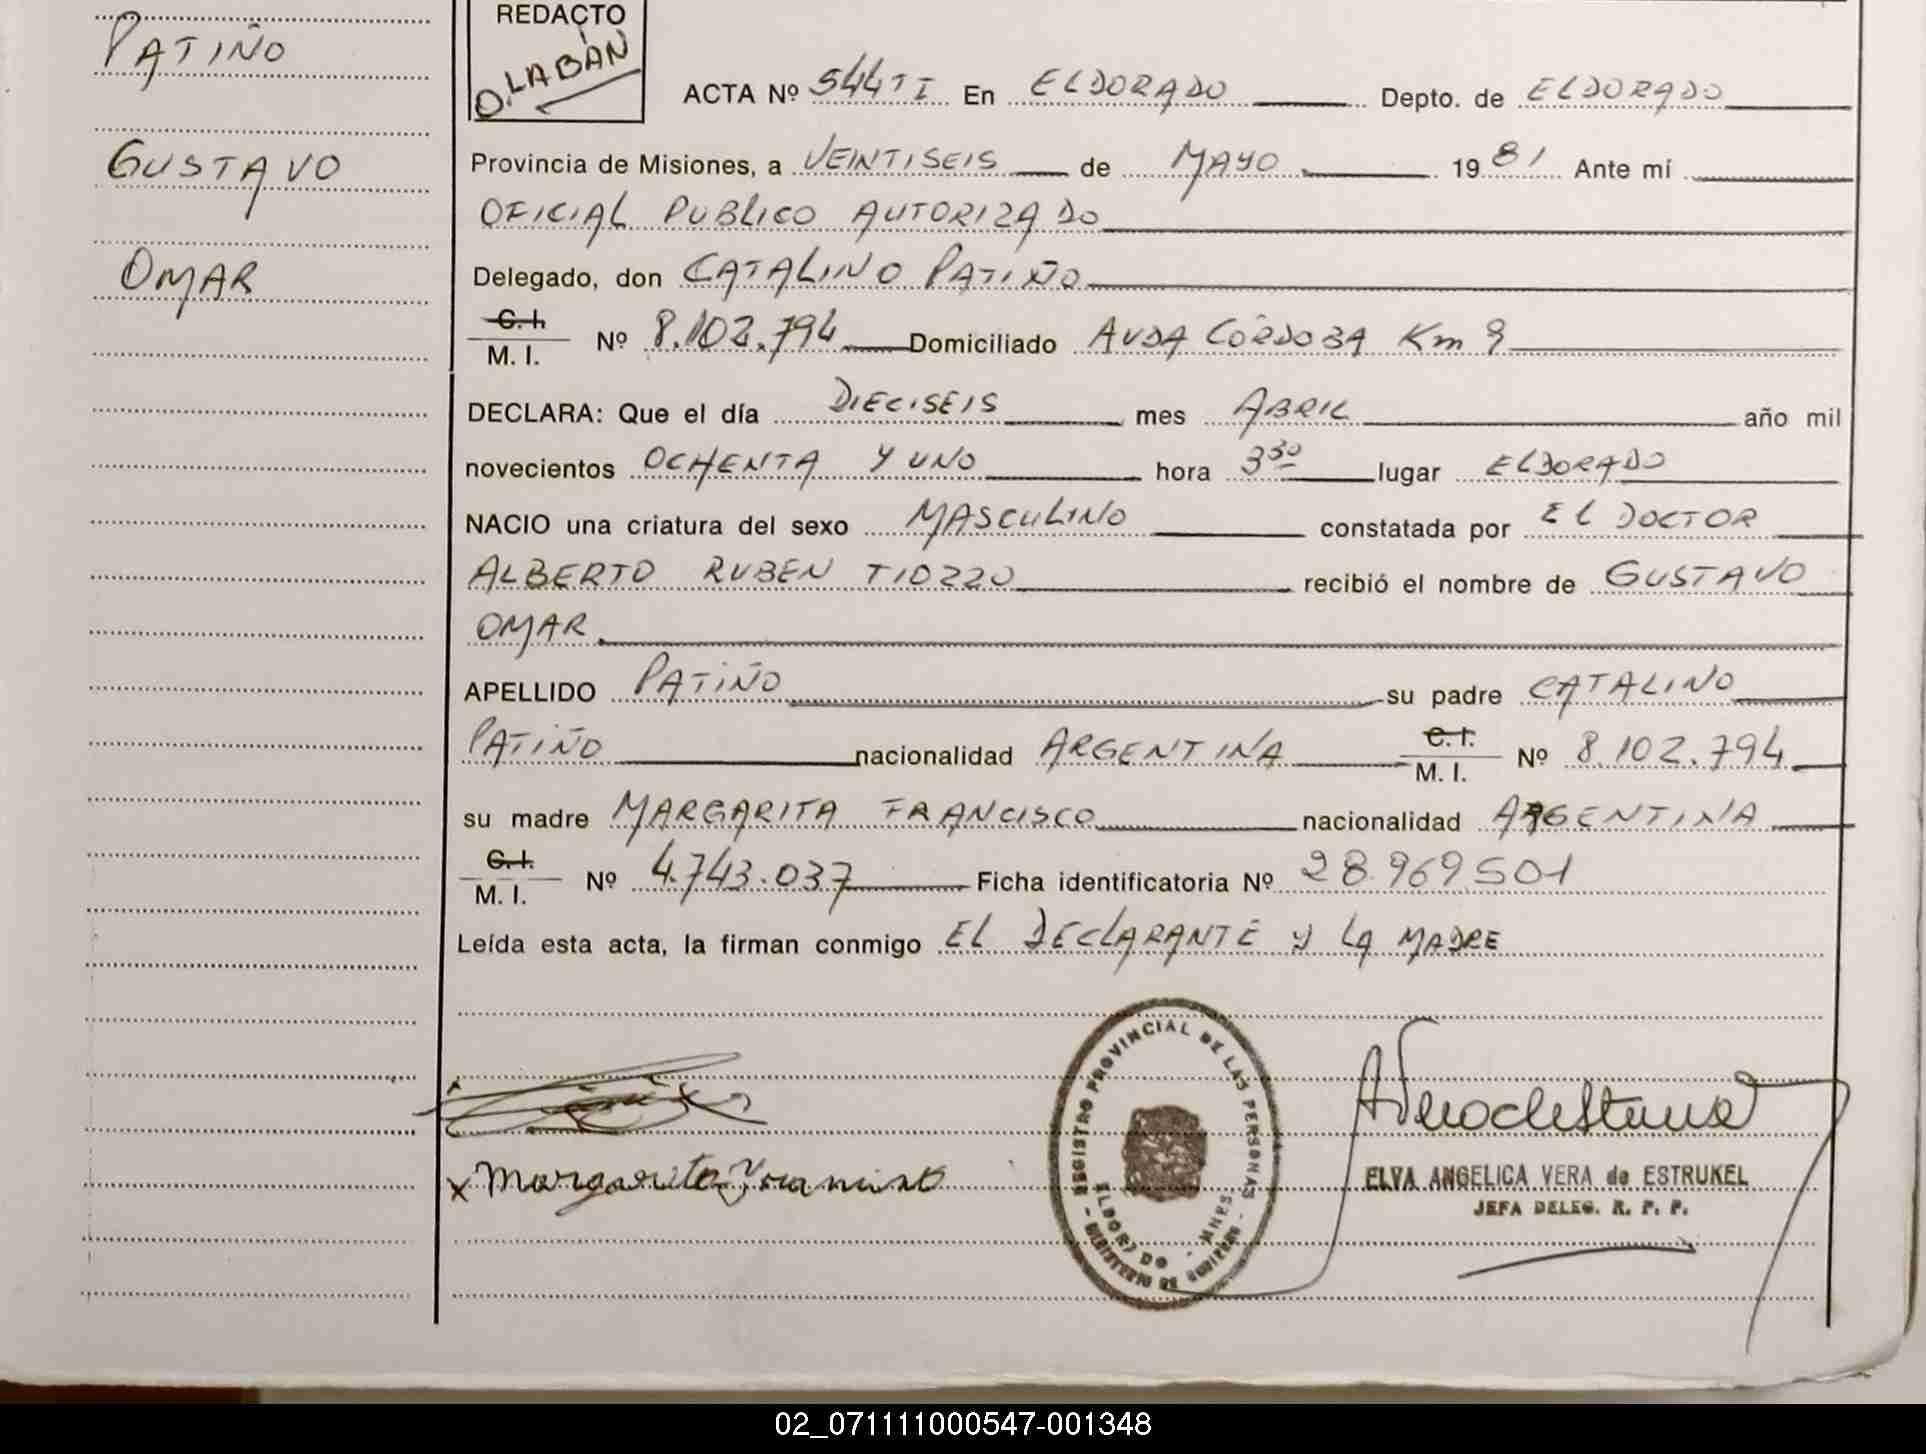 PATIÑO
GUSTAVO
OMAR
REDACTO
O. LABÁN
ACTA Nº 544 T I En ELDORADO Depto. de ELDORADO
Provincia de Misiones, a VEINTISEIS de MAYO 19 81 Ante mí
OFICIAL PUBLICO AUTORIZADO
Delegado, don CATALINO PATIÑO
C. I.
M. I. Nº 8.102.794 Domiciliado AVDA CÓRDOBA Km 9
DECLARA: Que el día DIECISEIS mes ABRIL año mil
novecientos OCHENTA Y UNO hora 3 30 lugar ELDORADO
NACIO una criatura del sexo MASCULINO constatada por EL DOCTOR
ALBERTO RUBEN TIOZZO recibió el nombre de GUSTAVO
OMAR
APELLIDO PATIÑO su padre CATALINO
PATIÑO nacionalidad ARGENTINA C. I. M. I. Nº 8.102.794
su madre MARGARITA FRANCISCO nacionalidad ARGENTINA
C. I.
M. I. Nº 4.743.037 Ficha identificatoria Nº 28.969.501
Leída esta acta, la firman conmigo EL DECLARANTE y LA MADRE
x Margarita Francisco
REGISTRO PROVINCIAL DE LAS PERSONAS
- MINISTERIO DE GOBIERNO -
ELDORADO - MNES
ELVA ANGELICA VERA de ESTRUKEL
JEFA DELEG. R. P. P.
02_071111000547-001348